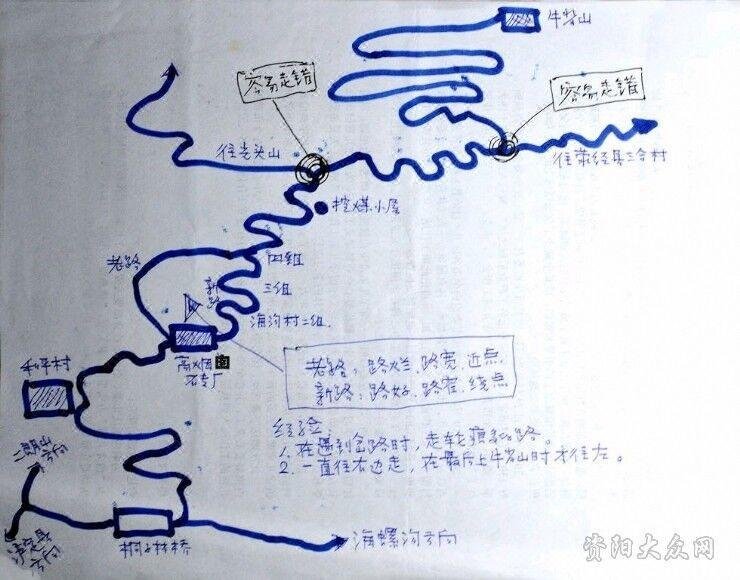 牛背山
容易走错
容易走错
往老头山
往荥经县三合村
挖煤小屋
老路
四组
新路
三组
海沟村二组.
高烟囱
石专厂
老路：路烂、路宽、近点
新路：路好、路窄、绕点
和坪村
经验：
1. 在遇到岔路时，走车轮痕多的路。
2. 一直往右边走，在最后上牛背山时才往左。
二郎山
方向
泸定县
方向
桐子林桥
海螺沟方向
资阳大众网